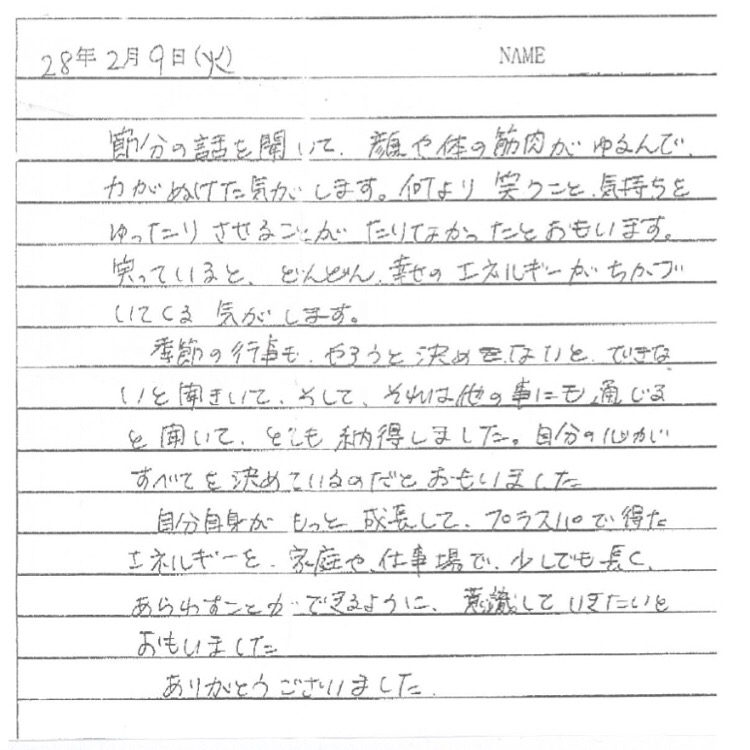 28年2月9日(火) NAME
節分の話を聞いて、顔や体の筋肉がゆるんで、
力がぬけた気がします。何より笑うこと、気持ちを
ゆったりさせることがたりてなかったとおもいます。
笑っていると、どんどん、幸せのエネルギーがちかづ
いてくる気がします。
季節の行事も、やろうと決めないと、できな
いと聞きいて、そして、それは他の事にも通じる
と聞いて、とても納得しました。自分の心がい
すべてを決めているのだとおもいました
自分自身がもっと成長して、プラスパで得た
エネルギーを、家庭や、仕事場で、少しでも長く、
あらわすことができるように、意識していきたいと
おもいました
ありがとうございました。